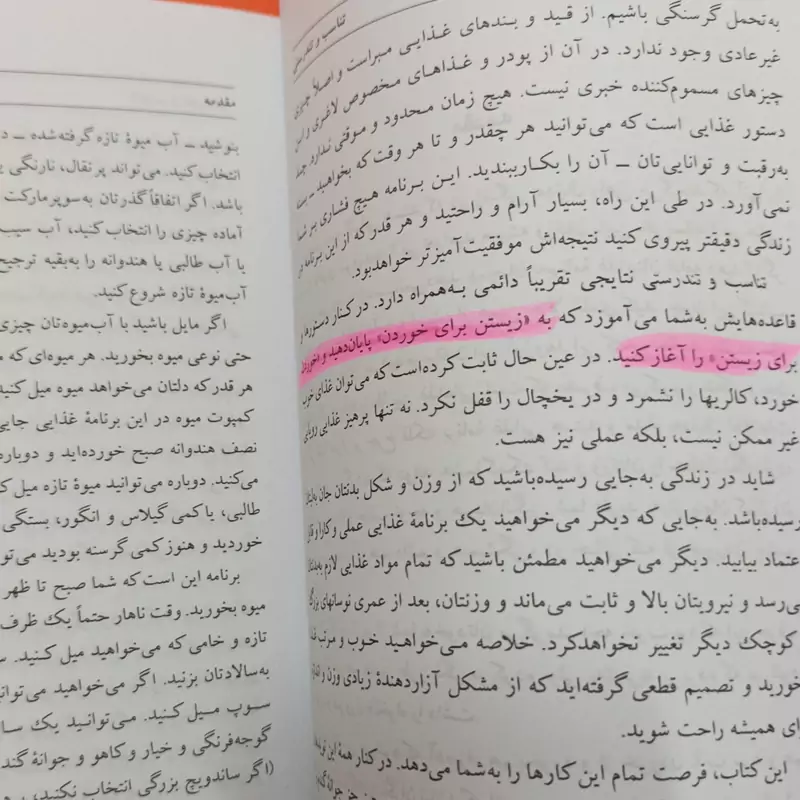 تناسب و تندرستی
به‌تحمل گرسنگی باشیم. از قید و بندهای غذایی مبراست و اصلاً چیزی
غیرعادی وجود ندارد. در آن از پودر و غذاهای مخصوص لاغری و این
چیزهای مسموم‌کننده خبری نیست. هیچ زمان محدود و موقتی ندارد.
دستور غذایی است که می‌توانید هر چقدر و تا هر وقت که بخواهید ــ بسته
به‌رقبت و توانایی‌تان ــ آن را بکاربندید. این برنامه هیچ فشاری بر شما
نمی‌آورد. در طی این راه، بسیار آرام و راحتید و هر قدر که از این برنامه در
زندگی دقیقتر پیروی کنید نتیجه‌اش موفقیت‌آمیزتر خواهدبود.
تناسب و تندرستی نتایجی تقریباً دائمی به‌همراه دارد. در کنار دستورها و
قاعده‌هایش به‌شما می‌آموزد که به «زیستن برای خوردن» پایان‌دهید و «خوردن
برای زیستن» را آغاز کنید. در عین حال ثابت کرده‌است که می‌توان غذای خوب
خورد، کالریها را نشمرد و در یخچال را قفل نکرد. نه تنها پرهیز غذایی رویای
غیر ممکن نیست، بلکه عملی نیز هست.
شاید در زندگی به‌جایی رسیده‌باشید که از وزن و شکل بدنتان جان به‌لبتان
رسیده‌باشد. به‌جایی که دیگر می‌خواهید یک برنامهٔ غذایی عملی و کارا و قابل
عتماد بیابید. دیگر می‌خواهید مطمئن باشید که تمام مواد غذایی لازم به‌بدنتان
می‌رسد و نیرویتان بالا و ثابت می‌ماند و وزنتان، بعد از عمری نوسانهای بزرگ
کوچک دیگر تغییر نخواهدکرد. خلاصه می‌خواهید خوب و مرتب غذا
خورید و تصمیم قطعی گرفته‌اید که از مشکل آزاردهندهٔ زیادی وزن و
ای همیشه راحت شوید.
این کتاب، فرصت تمام این کارها را به‌شما می‌دهد. در کنار همهٔ این
مقدمه
بنوشید ــ آب میوهٔ تازه گرفته‌شده ــ
انتخاب‌کنید. می‌تواند پرتقال، نارنگی
باشد. اگر اتفاقاً گذرتان به‌سوپرمارکت
آماده چیزی را انتخاب کنید، آب سیب
یا آب طالبی یا هندوانه را به‌بقیه ترجیح
آب‌میوهٔ تازه شروع کنید.
اگر مایل باشید با آب میوه‌تان چیزی
حتی نوعی میوه بخورید. هر
هر قدر که دلتان می‌خواهد میوه میل کنید
کمپوت میوه در این برنامهٔ غذایی جایی
نصف هندوانه صبح خورده‌اید و دوباره
می‌کنید. دوباره می‌توانید میوهٔ تازه میل
طالبی، یا کمی گیلاس و انگور، بستگی
خوردید و هنوز کمی گرسنه بودید می‌تو
برنامه این است که شما صبح تا ظهر
میوه بخورید. وقت ناهار حتماً یک ظرف
تازه و خامی که می‌خواهید میل کنید.
به‌سالادتان بزنید. اگر می‌خواهید می‌توانی
سوپ میل کنید. می‌توانید یک
گوجه‌فرنگی و خیار و کاهو و جوانهٔ
(اگر ساندویچ بزرگی انتخاب نکنید،